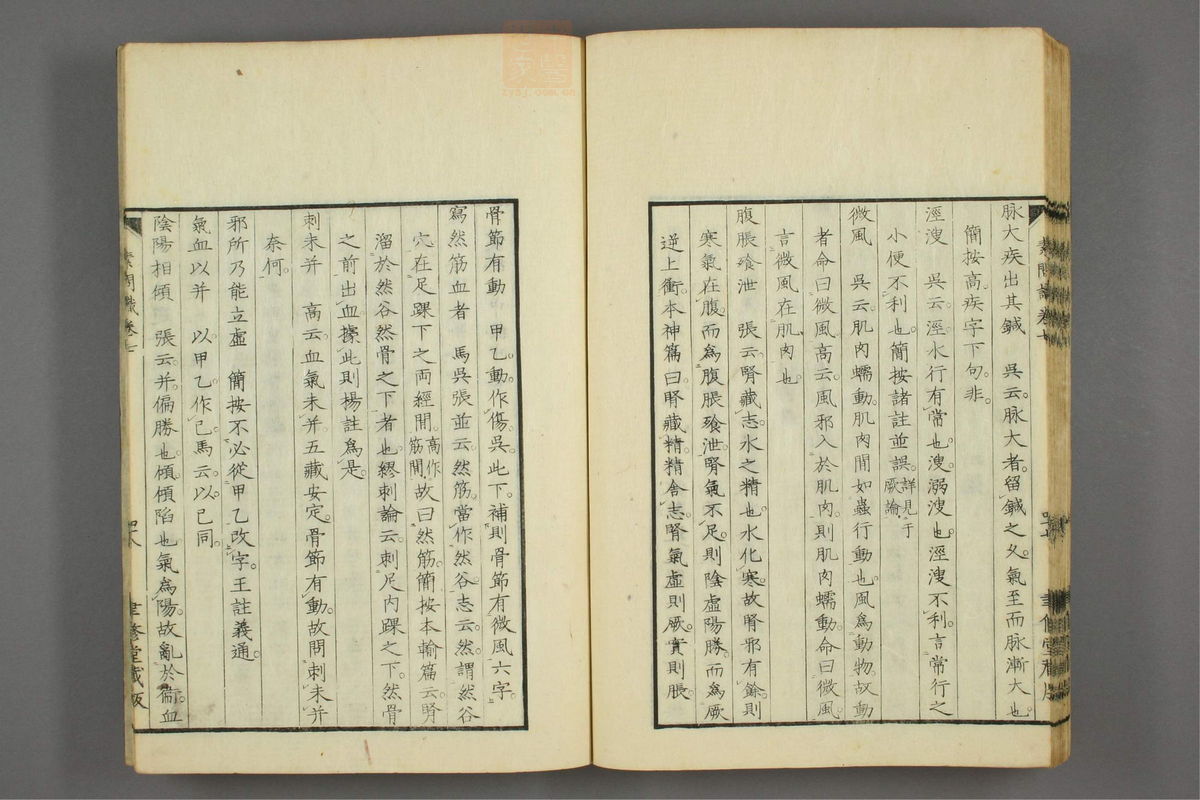 脉大疾出其鍼　吳云脉大者留鍼之久氣至而脉漸大也
簡按高疾字下句非
涇溲　吳云涇水行有常也溲溺溲也涇溲不利言常行之
小便不利也簡按諸註並誤詳見于厥論
微風　吳云肌肉蠕動肌肉間如蟲行動也風爲動物故動
者命曰微風高云風邪入於肌肉則肌肉蠕動命曰微風
言微風在肌肉也
腹脹飱泄　張云腎藏志水之精也水化寒故腎邪有餘則
寒氣在腹而爲腹脹飱泄腎氣不足則陰虛陽勝而爲厥
逆上衝本神篇曰腎藏精精舍志腎氣虛則厥實則脹
骨節有動　甲乙動作傷吳此下補則骨節有微風六字
寫然筋血者　馬吳張並云然筋當作然谷志云然謂然谷
穴在足踝下之兩經間高作筋間故曰然筋簡按本輸篇云腎
溜於然谷然骨之下者也繆刺論云刺足內踝之下然骨
之前出血據此則楊註爲是
刺未并　高云血氣未并五藏安定骨節有動故問刺未并
奈何
邪所乃能立虛　簡按不必從甲乙改字王註義通
氣血以并　以甲乙作已馬云以已同
陰陽相傾　張云并偏勝也傾傾陷也氣爲陽故亂於衞血
素問識卷七
聿修堂藏版